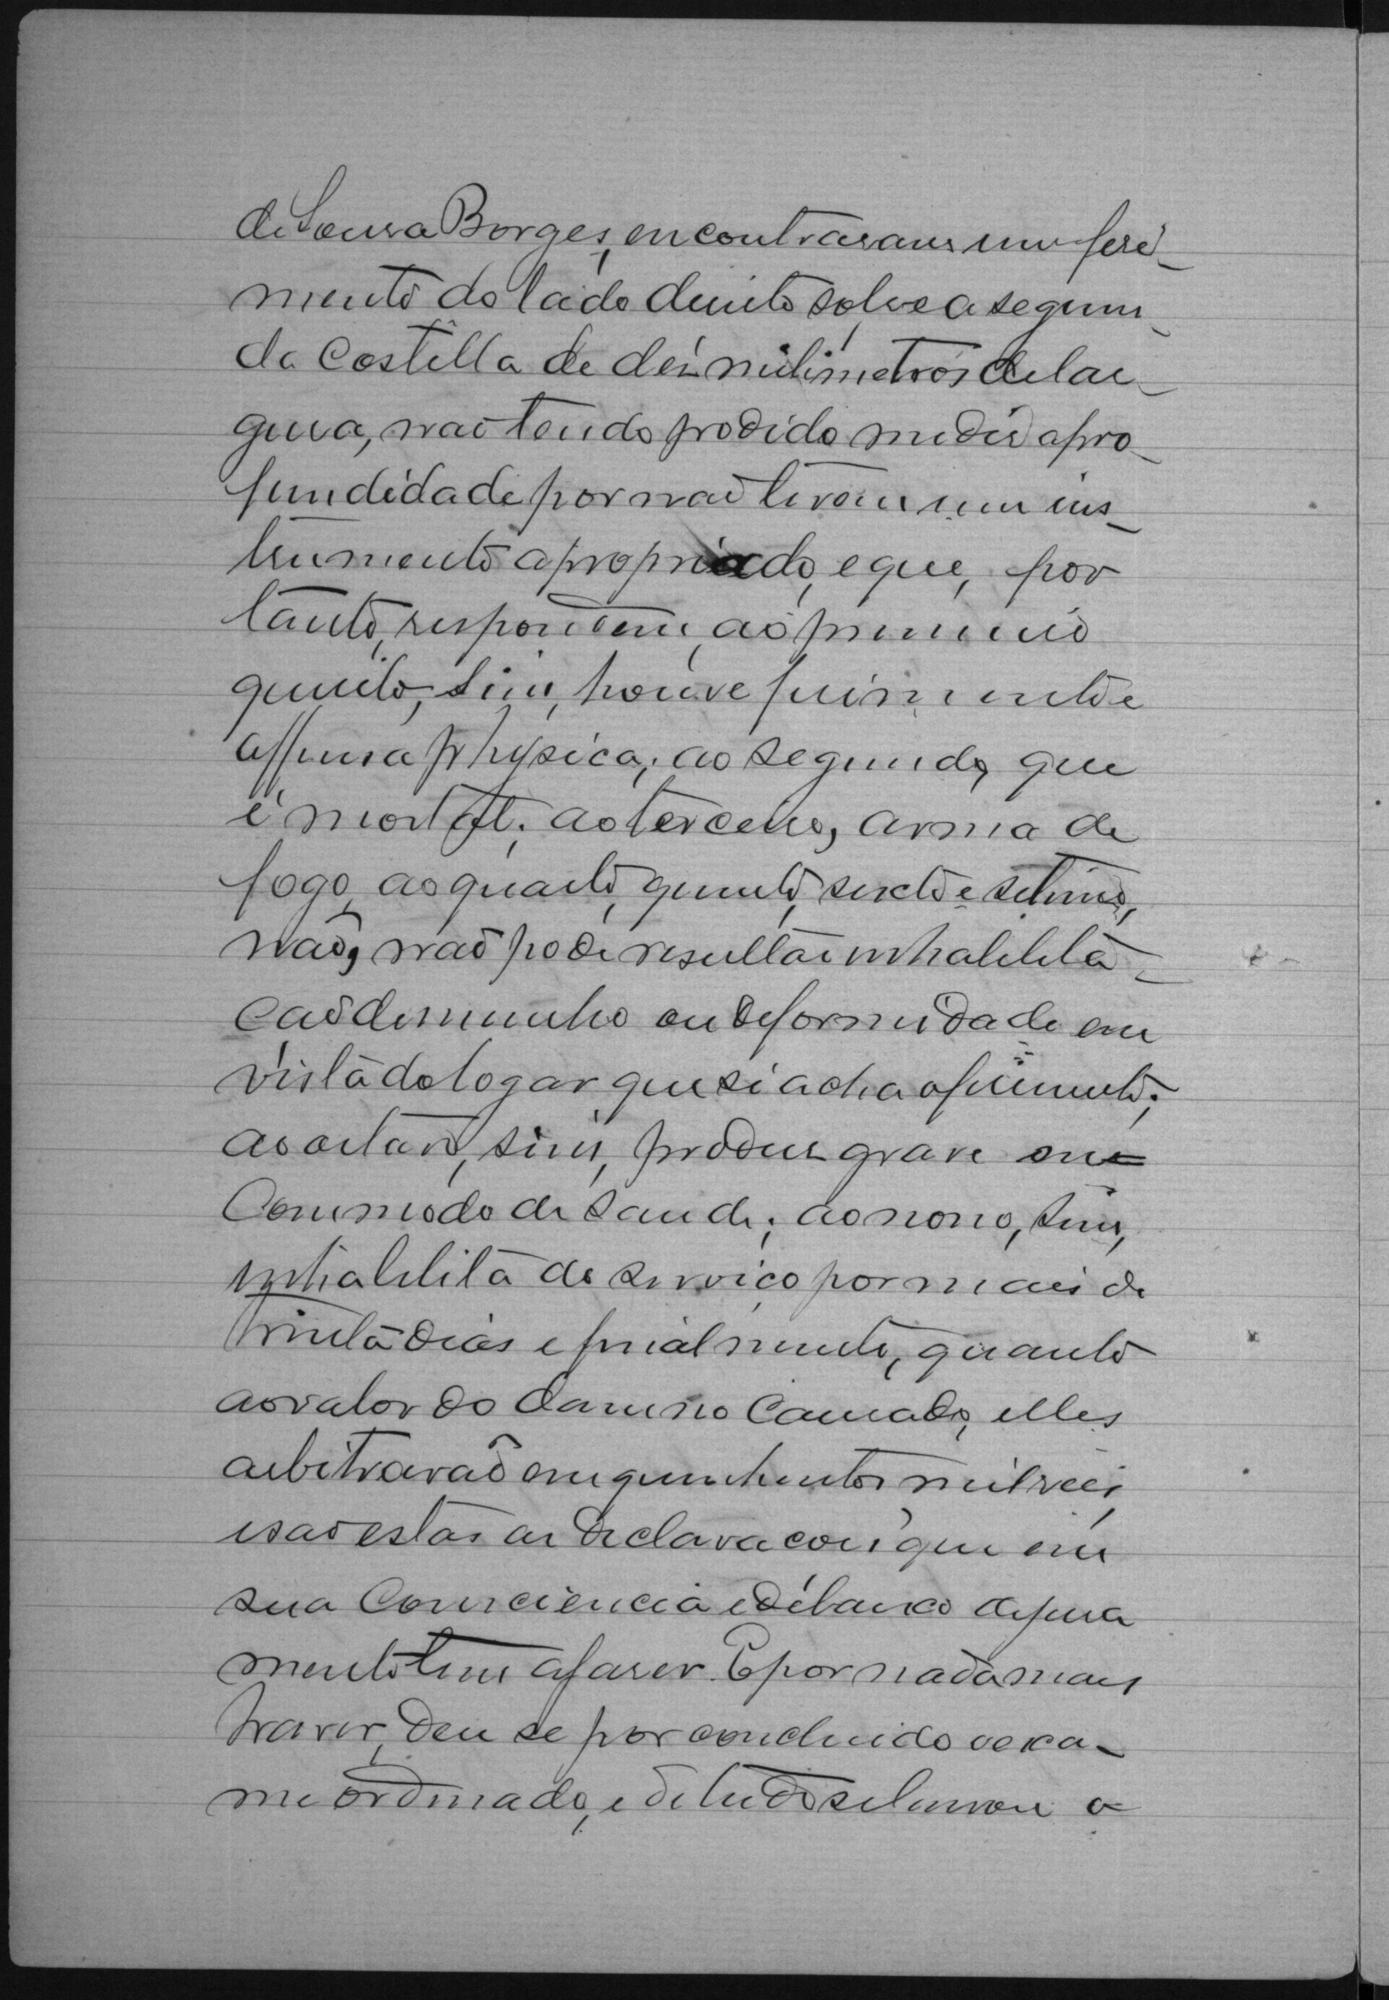 de Sousa Borges, encontraram um feri-
mento do lado direito sobre a segun-
da Costella de dez milimetros de lar-
gura, não tendo podido medir a pro-
fundidade por não terem um ins-
trumento apropriado, e que, por
tanto, respondem, ao primeiro
quisito, sim, houve ferimento e
offensa physica; ao segundo, que
é mortal; ao terceiro, arma de
fogo, ao quarto, quinto, sexto e setimo,
não, não pode resultar inhabilita-
cão de membro ou deformidade em
vista do logar que se acha o ferimento;
ao oitavo, sim, produz grave en=
Commodo de Saude; ao nono, sim,
inhabilita do serviço por mais de
trinta dias e finalmente, quanto
ao valor do damno Causado, elles
arbitravão em quinhentos mil reis,
e são estas as declaracoes que em
sua Consciencia e debaixo de jura
mento tem a faser. E por nada mais
haver, deu se por concluido o exa-
me ordenado, e de tudo se lavrou o